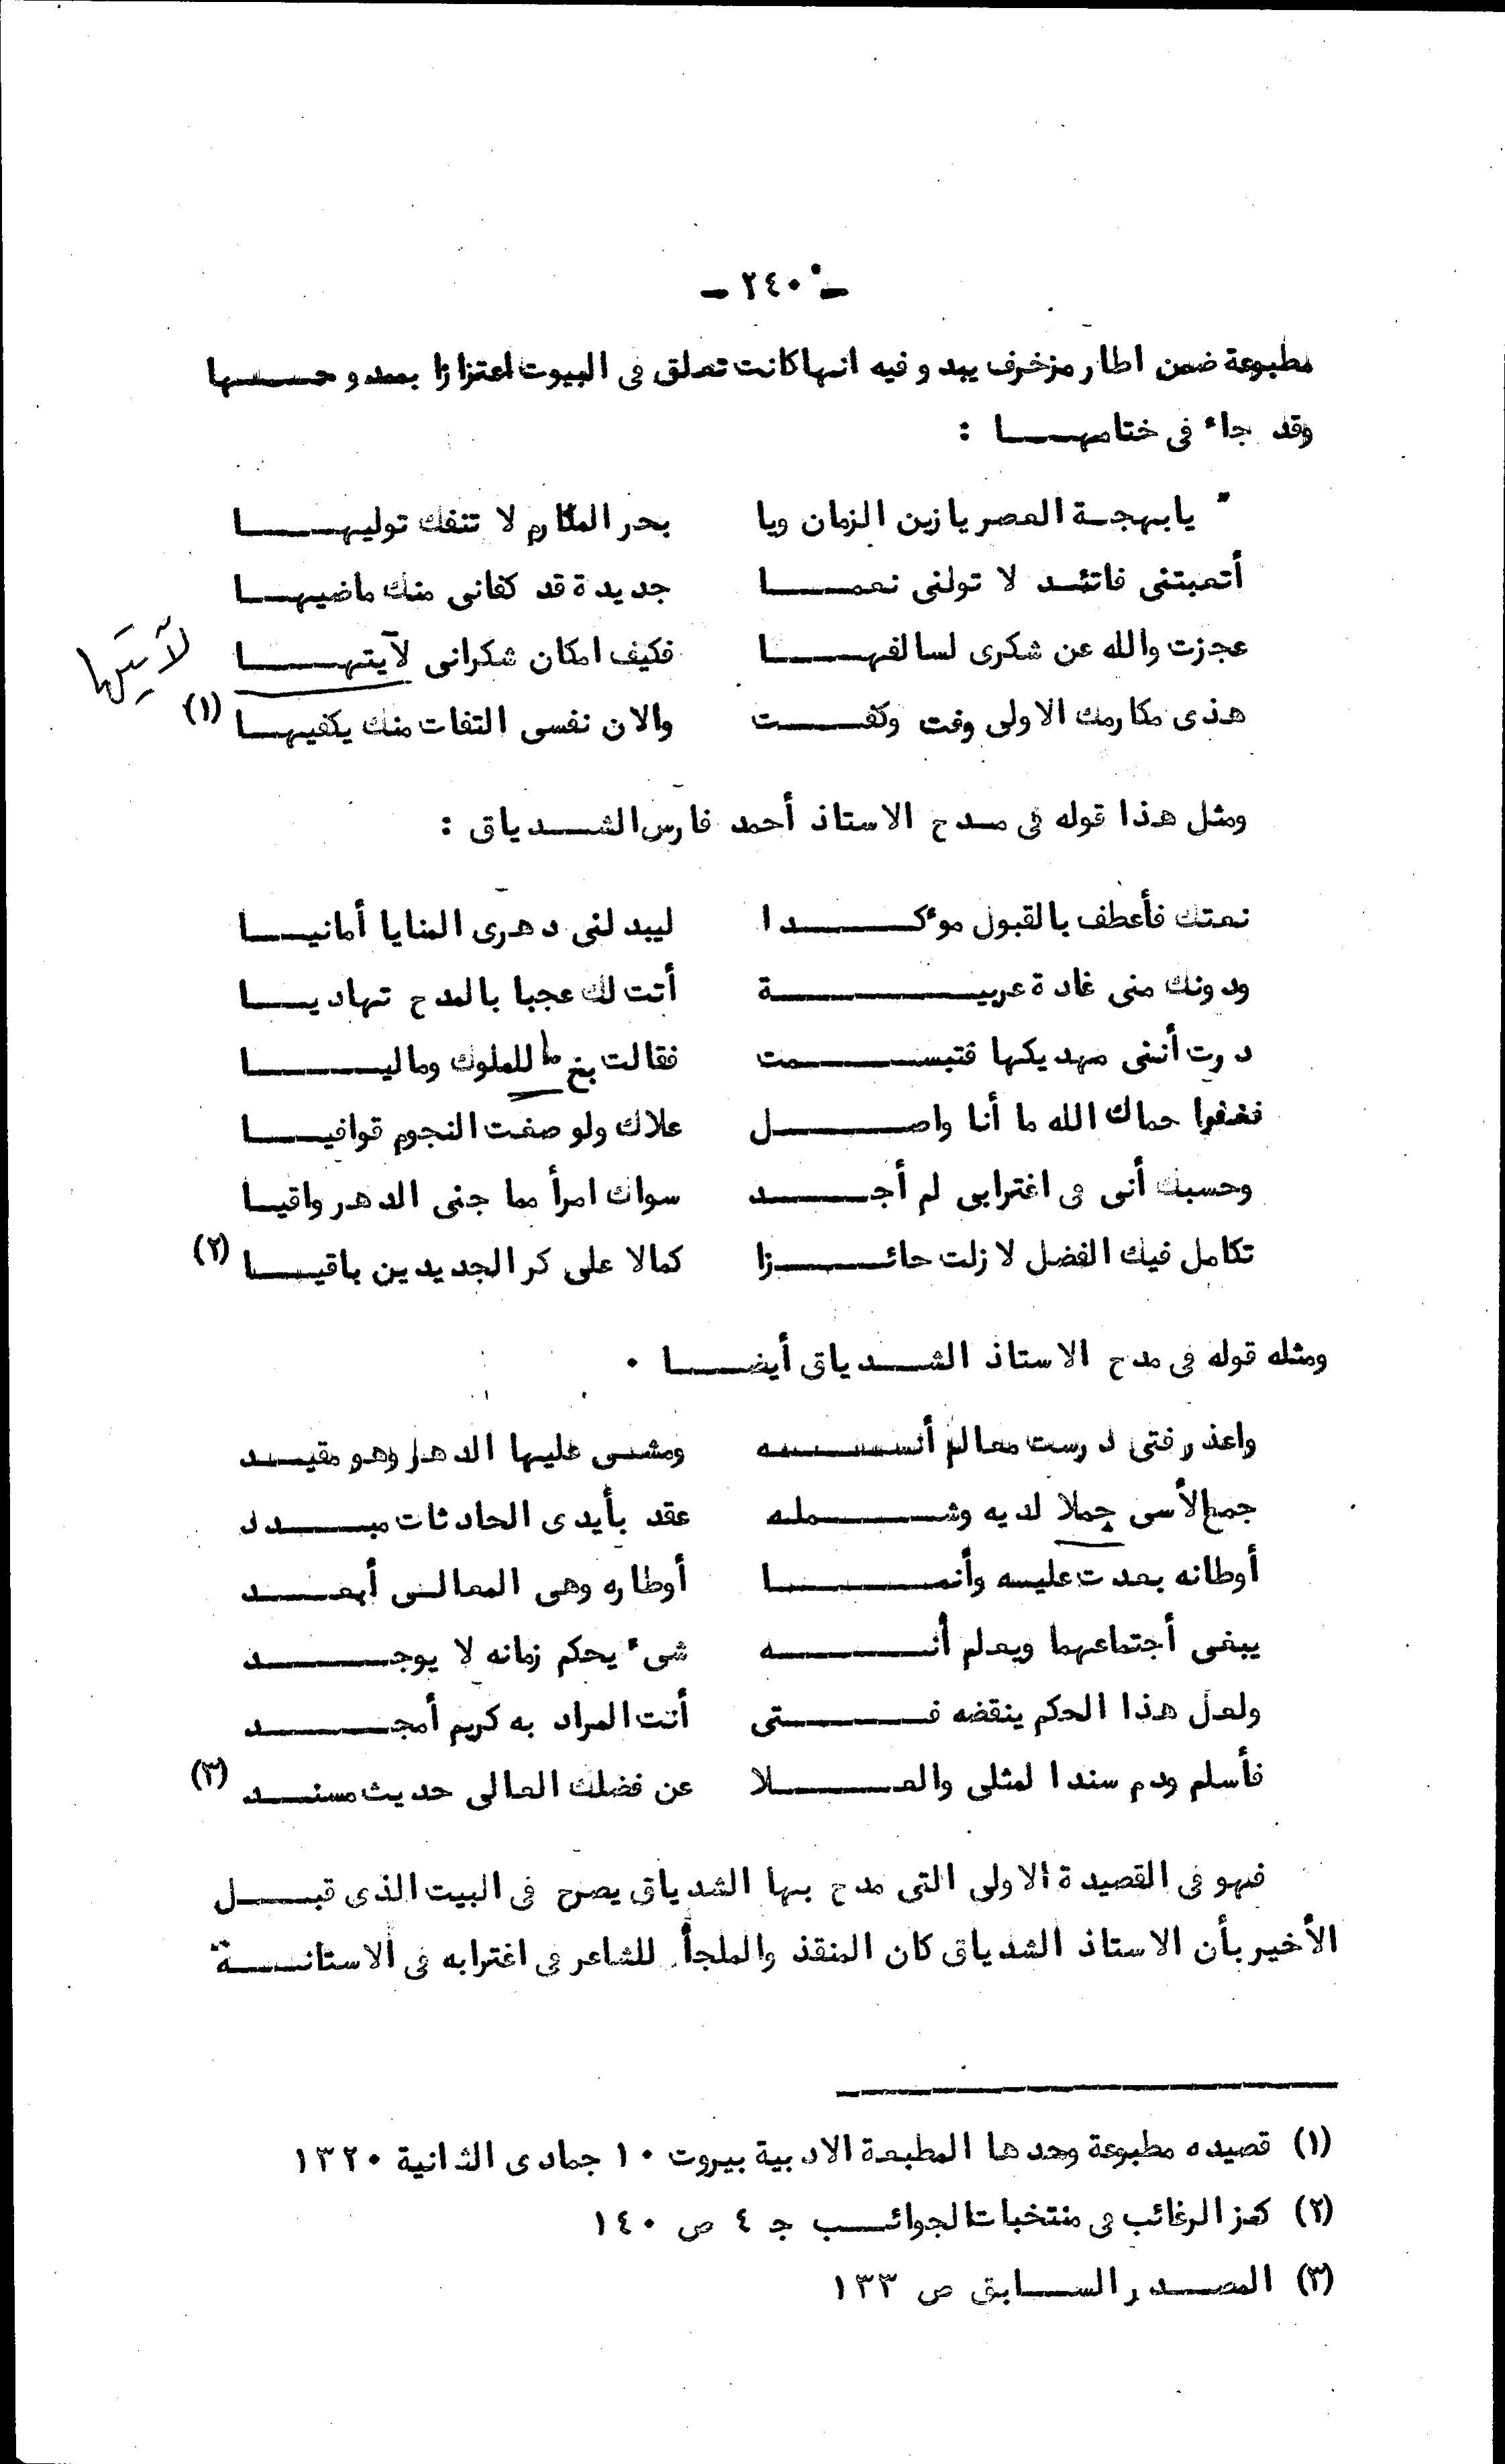 - ٢٤٠ -
مطبوعة ضمن اطار مزخرف يبدو فيه انها كانت تعلق في البيوت اعتزازا بممدوحها
وقد جاء في ختامها :
" يا بهجة العصر يا زين الزمان ويا بحر المكارم لا تنفك توليها
أتعبتني فاتئد لا تولني نعما جديدة قد كفاني منك ماضيها
عجزت والله عن شكرى لسالفها فكيف امكان شكراني لآيتها
لآتيها
هذى مكارمك الاولى وفت وكفت والان نفسي التفات منك يكفيها (١)
ومثل هذا قوله في مدح الاستاذ أحمد فارس الشدياق :
نعتك فأعطف بالقبول موءكدا ليبدلني دهرى المنايا أمانيا
ودونك مني غادة عربية أتت لك عجبا بالمدح تهاديا
درت أنني مهديكها فتبسمت فقالت بخ ما للملوك وماليا
فغفرا حماك الله ما أنا واصل علاك ولو صغت النجوم قوافيا
وحسبك أني في اغترابي لم أجد سواك امرأ مما جنى الدهر واقيا
تكامل فيك الفضل لا زلت حائزا كمالا على كر الجديدين باقيا (٢)
ومثله قوله في مدح الاستاذ الشدياق أيضا .
واعذر فتى درست معالم أنسه ومشى عليها الدهر وهو مقيد
جمع الأسى جملا لديه وشمله عقد بأيدى الحادثات مبدد
أوطانه بعدت عليه وأنما أوطاره وهي المعالي أبعد
يبغي أجتماعهما ويعلم أنه شيء يحكم زمانه لا يوجد
ولعل هذا الحكم ينقضه فتى أنت المراد به كريم أمجد
فأسلم ودم سندا لمثلي والعلا عن فضلك العالي حديث مسند (٣)
فهو في القصيدة الاولى التي مدح بها الشدياق يصرح في البيت الذى قبل
الأخير بأن الاستاذ الشدياق كان المنقذ والملجأ للشاعر في اغترابه في الاستانة
(١) قصيده مطبوعة وحدها المطبعة الادبية بيروت ١٠ جمادى الثانية ١٣٢٠
(٢) كنز الرغائب في منتخبات الجوائب ج ٤ ص ١٤٠
(٣) المصدر السابق ص ١٣٣